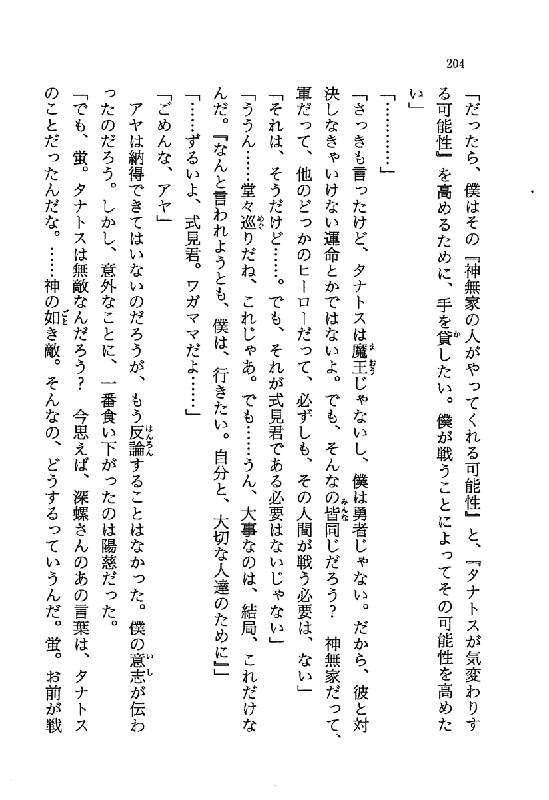 204
「だったら、僕はその『神無家の人がやってくれる可能性』と、『タナトスが気変わりす
る可能性』を高めるために、手を貸したい。僕が戦うことによってその可能性を高めた
い」
「…………」
「さっきも言ったけど、タナトスは魔王じゃないし、僕は勇者じゃない。だから、彼と対
決しなきゃいけない運命とかではないよ。でも、そんなの皆同じだろう？　神無家だって、
軍だって、他のどっかのヒーローだって、必ずしも、その人間が戦う必要は、ない」
「それは、そうだけど……。でも、それが式見君である必要はないじゃない」
「ううん……堂々巡りだね、これじゃあ。でも……うん、大事なのは、結局、これだけな
んだ。『なんと言われようとも、僕は、行きたい。自分と、大切な人達のために』」
「……ずるいよ、式見君。ワガママだよ……」
「ごめんな、アヤ」
アヤは納得できてはいないのだろうが、もう反論することはなかった。僕の意志が伝わ
ったのだろう。しかし、意外なことに、一番食い下がったのは陽慈だった。
「でも、蛍。タナトスは無敵なんだろう？　今思えば、深螺さんのあの言葉は、タナトス
のことだったんだな。……神の如き敵。そんなの、どうするっていうんだ。蛍。お前が戦